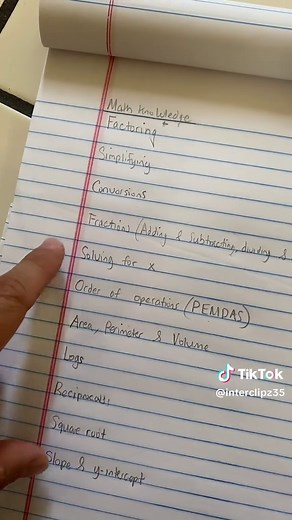 Math Knowledge
Factoring
Simplifying
Conversions
Fractions (Adding & Subtracting, dividing &
Solving for x
Order of operations (PEMDAS)
Area, Perimeter & Volume
Logs
Reciprocals
Square root
Slope & y-intercept
TikTok
@interclipz35